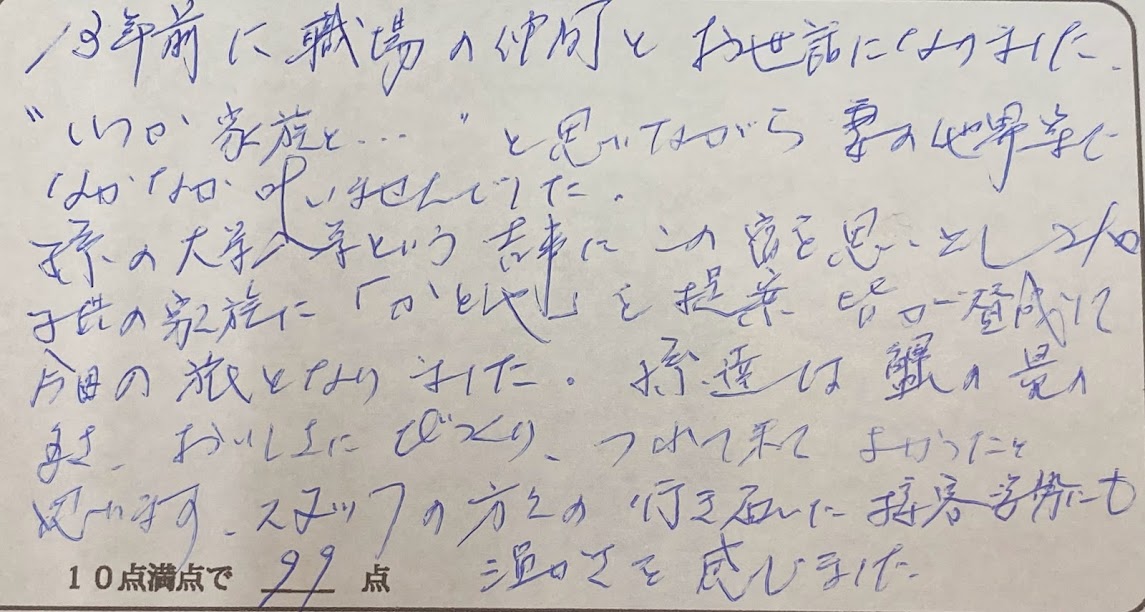 13年前に職場の仲間とお世話になりました。
"いつか家族と…"と思いながら妻の他界等で
なかなか叶いませんでした。
孫の大学入学という吉事にこの宿を思い出し
子供の家族に「かと地」を提案 皆が賛成して
今回の旅となりました。孫達は蟹の量の
多さ、おいしさにびっくり、つれて来てよかったと
思います。スタッフの方々の行き届いた接客姿勢にも
温かさを感じました
10点満点で 99 点